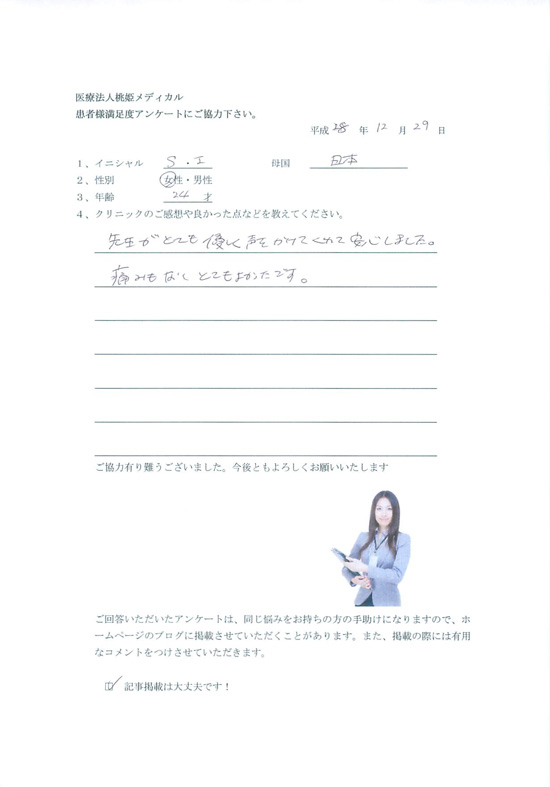 医療法人桃姫メディカル
患者様満足度アンケートにご協力下さい。
平成 28 年 12 月 29 日
1、イニシャル S . I 母国 日本
2、性別 女性・男性
3、年齢 24 才
4、クリニックのご感想や良かった点などを教えてください。
先生がとても優しく声をかけてくれて安心しました。
痛みもなくとてもよかったです。
ご協力有り難うございました。今後ともよろしくお願いいたします
ご回答いただいたアンケートは、同じ悩みをお持ちの方の手助けになりますので、ホ
ームページのブログに掲載させていただくことがあります。また、掲載の際には有用
なコメントをつけさせていただきます。
☑ 記事掲載は大丈夫です！